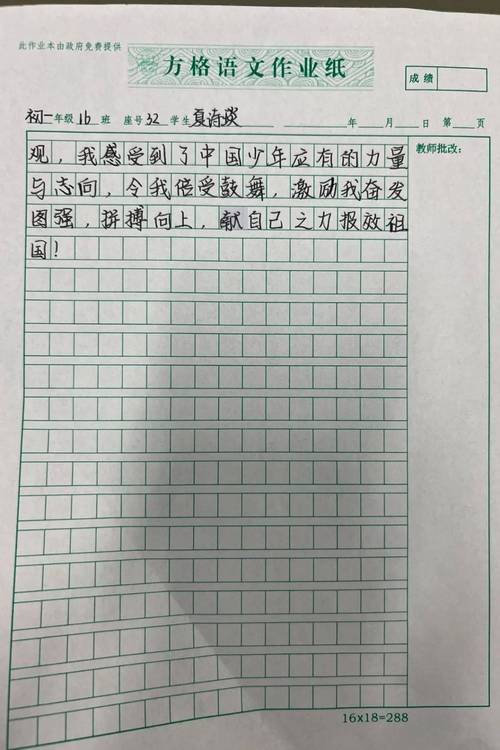 此作业本由政府免费提供
方格语文作业纸
成绩
初一年级16班 座号32 学生夏诗琰 年 月 日 第 页
观，我感受到了中国少年应有的力量
与志向，令我倍受鼓舞，激励我奋发
图强，拼搏向上，献自己之力报效祖
国！
教师批改：
16x18=288